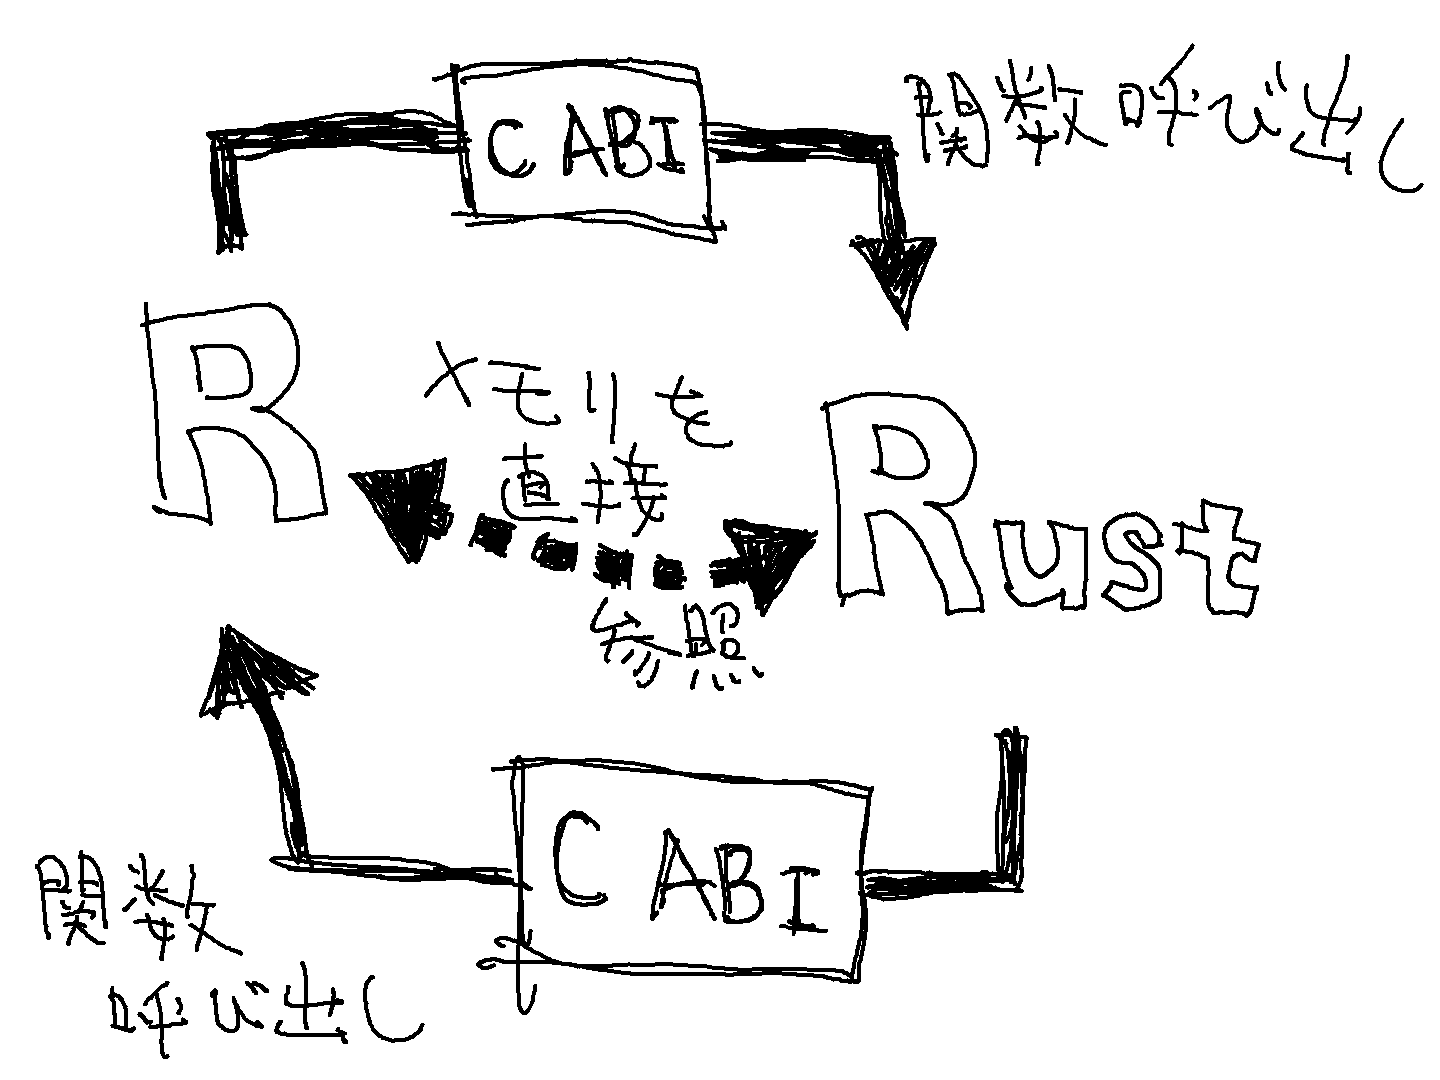 C ABI
関数呼び出し
R
メモリを
直接
参照
Rust
C ABI
関数
呼び出し